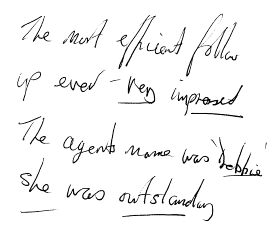 The most efficient follow
up ever - very impressed
The agents name was "Debbie"
she was outstanding